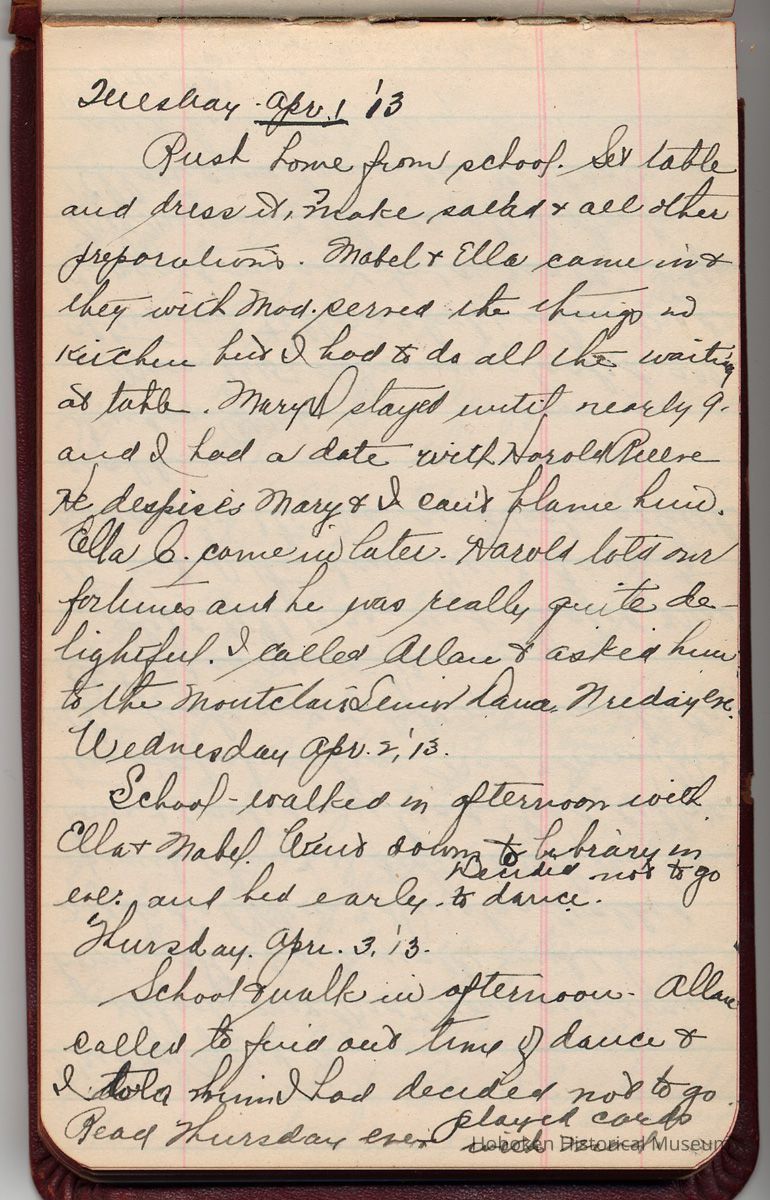 Tuesday. Apr. 1 '13
Rush home from school. Set table
and dress it, make salad & all other
preparations. Mabel & Ella came in &
they with Mad. served the things in
kitchen but I had to do all the waiting
at table. Mary D stayed until nearly 9.
and I had a date with Harold Reeve
He despises Mary & I can't blame him.
Ella C. came in later. Harold told our
fortunes and he was really quite de-
lightful. I called Allan & asked him
to the Montclair Senior Dance Friday eve.
Wednesday Apr. 2, '13.
School - walked in afternoon with
Ella & Mabel. Went down to library in
eve. and bed early. Decided not to go
to dance.
Thursday. Apr. 3, '13.
School & walk in afternoon - Allan
called to find out time of dance &
I told him I had decided not to go.
Read Thursday even played cards
with
Hoboken Historical Museum